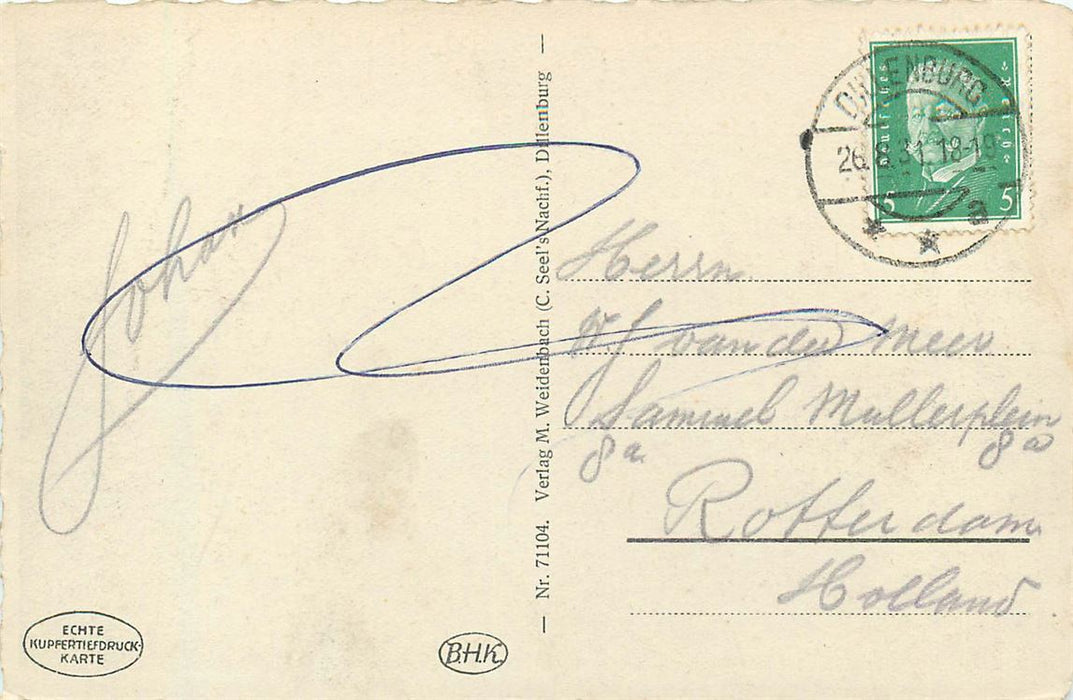 Johan
ECHTE
KUPFERTIEFDRUCK-
KARTE
B.H.K.
Nr. 71104. Verlag M. Weidenbach (C. Seel's Nachf.), Dillenburg
Deutsches Reich
5 5
DILLENBURG
26.8.31.18-19
a
Herrn
W.J van der Meer
Samuel Mullerplein
8a 8a
Rotterdam
Holland